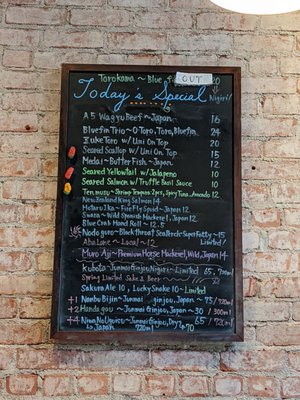 Torokama ~ Bluefin OUT 20
Today's Special Nigiri
A5 Wagyu Beef ~ Japan 16
Bluefin Trio ~ O Toro, Toro, Bluefin 24
Zuke Toro w/ Uni On Top 20
Seared Scallop w/ Uni On Top 15
Medai ~ Butter Fish ~ Japan 12
Seared Yellowtail w/ Jalapeno 10
Seared Salmon w/ Truffle Basil Sauce 10
Ten musu ~ Shrimp Tempura 2pcs, Spicy Tuna, Avocado 12
New Zealand King Salmon 14
Hotaru Ika ~ Fire Fly Squid ~ Japan 12
Sawara ~ Wild Spanish Mackerel, Japan 12
Blue Crab Hand Roll ~ 12.5
Nodoguro ~ Blackthroat SeaPerch ~ Super Fatty ~ 15
Aba Lone ~ Local ~ 12 Limited!
Muro Aji ~ Premium Horse Mackerel, Wild, Japan 14
Kubota ~ Junmai Ginjou, Niigata ~ Limited 65, 720ml
Spring Limited Sake &
Sakura Ale 10, Lucky Snake 10 ~ Limited
+1 Nanbu Bijin ~ Junmai ginjou, Japan ~ 75 / 720ml
+2 Handa gou ~ Junmai Ginjou, Japan ~ 30 / 300ml
+4 ~ Junmai Ginjou, Dry, 65 / 720ml
~ Japan 720ml ~ 70